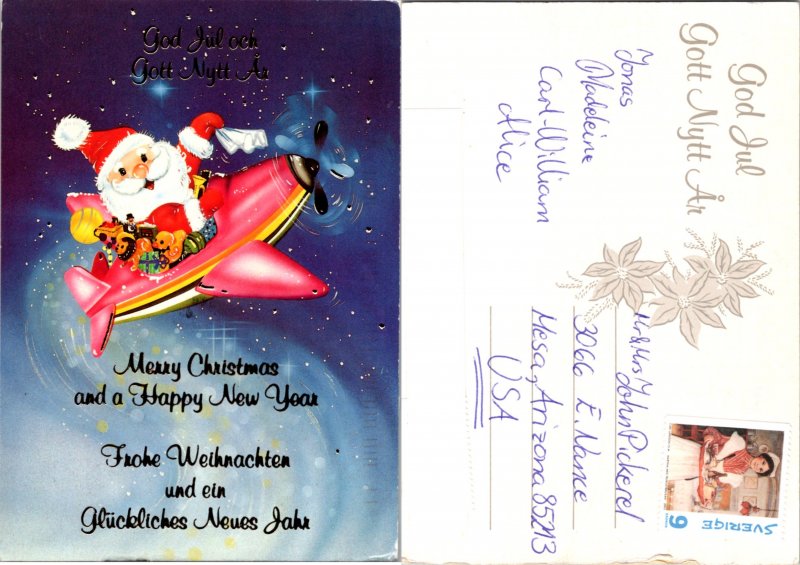 God Jul och
Gott Nytt År
Merry Christmas
and a Happy New Year
Frohe Weihnachten
und ein
Glückliches Neues Jahr
God Jul
Gott Nytt År
Jonas
Madeleine
Carl-William
Alice
Mr & Mrs John Pickerel
3066 E. Nance
Mesa, Arizona 85213
USA
SVERIGE
9